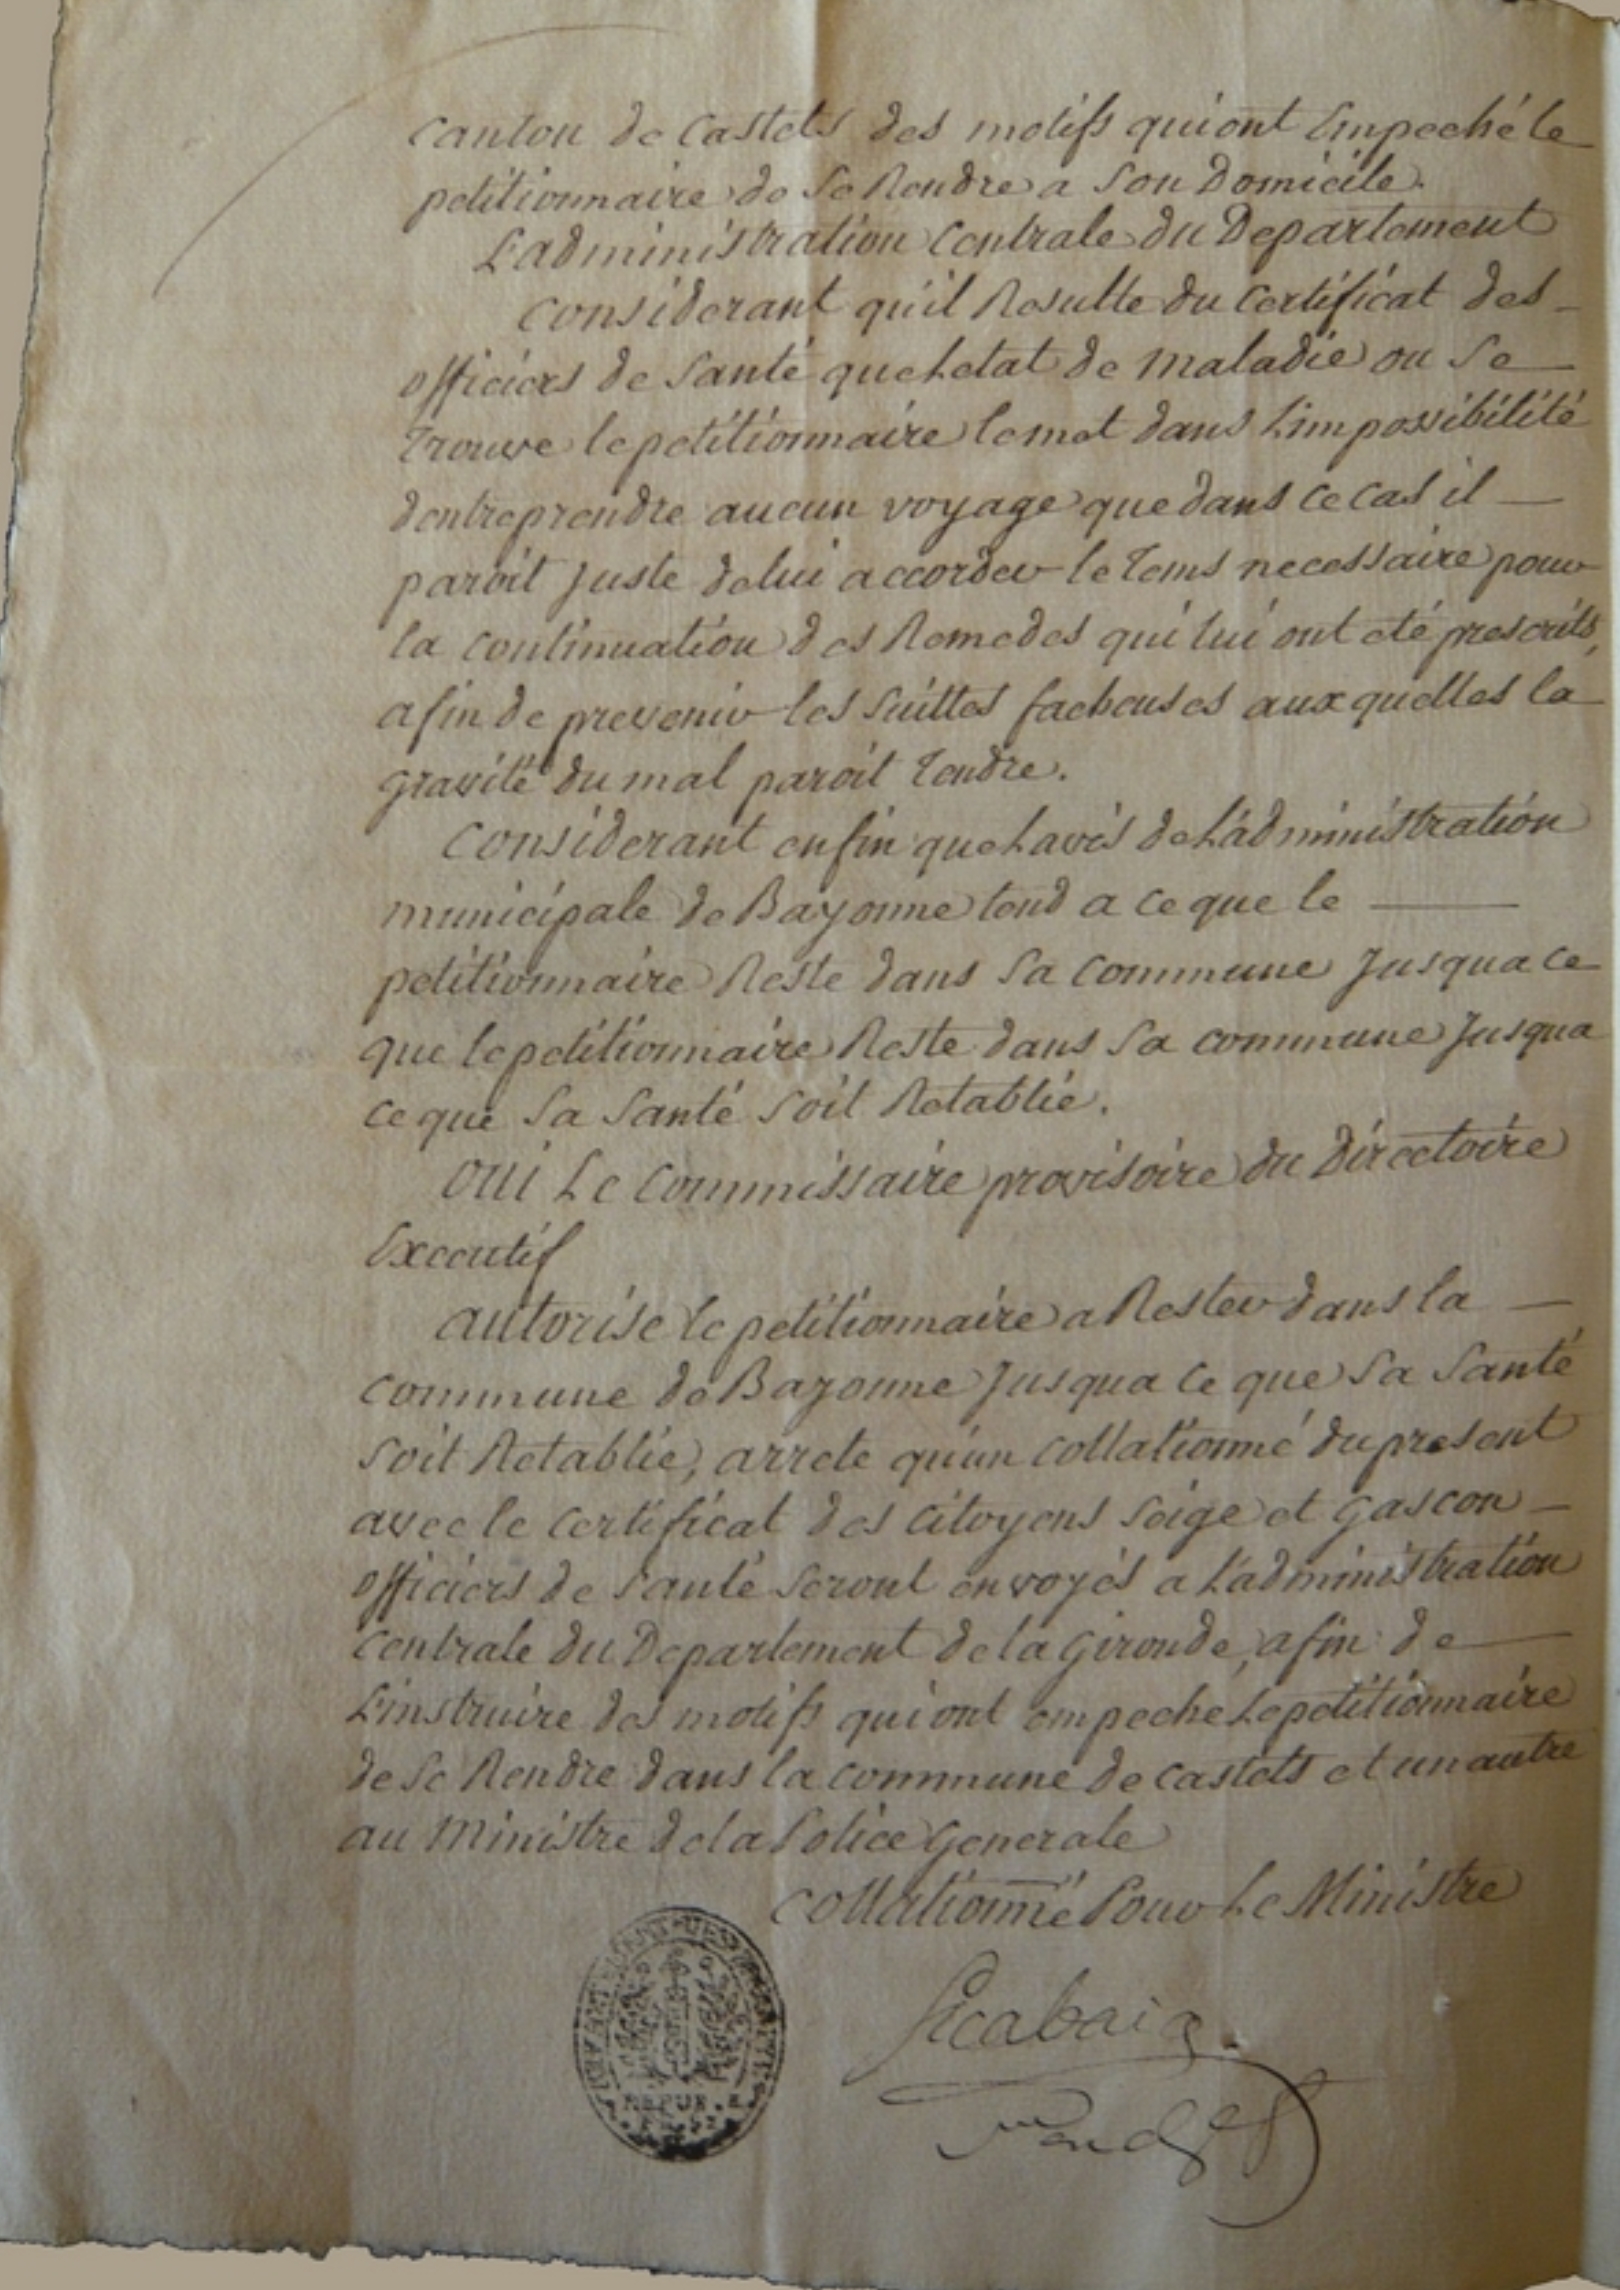 canton de Castets des motifs qui ont Empeché le
petitionnaire de se Rendre a son Domicile.
L'administration Centrale du Departement
considerant qu'il Resulte du Certificat des
officiers de Santé que Letat de maladie ou se
trouve le petitionnaire le met dans Limpossibilité
dentreprendre aucun voyage que dans ce cas il
paroit juste de lui accorder le tems necessaire pour
la continuation des Remedes qui lui ont eté prescrits,
afin de prevenir les Suittes facheuses auxquelles la
gravité du mal paroit tendre.
Considerant enfin que Lavis de L'administration
municipale de Bayonne tend a ce que le
petitionnaire Reste dans sa commune jusqua ce
que le petitionnaire Reste dans sa commune jusqua
ce que sa santé soit Retablie.
OUI Le Commissaire provisoire du Directoire
Executif
autorise le petitionnaire a Rester dans la
commune de Bayonne jusqua ce que sa santé
soit Retablie, arrete qu'un collationné du present
avec le certificat des citoyens Seige et gascon
officiers de santé seront envoyés a L'administration
centrale du Departement de la gironde, afin de
L'instruire des motifs qui ont empeche Le petitionnaire
de se Rendre dans la commune de Castets et un autre
au Ministre de la Police Generale
Collationné Pour Le Ministre
REPUB.